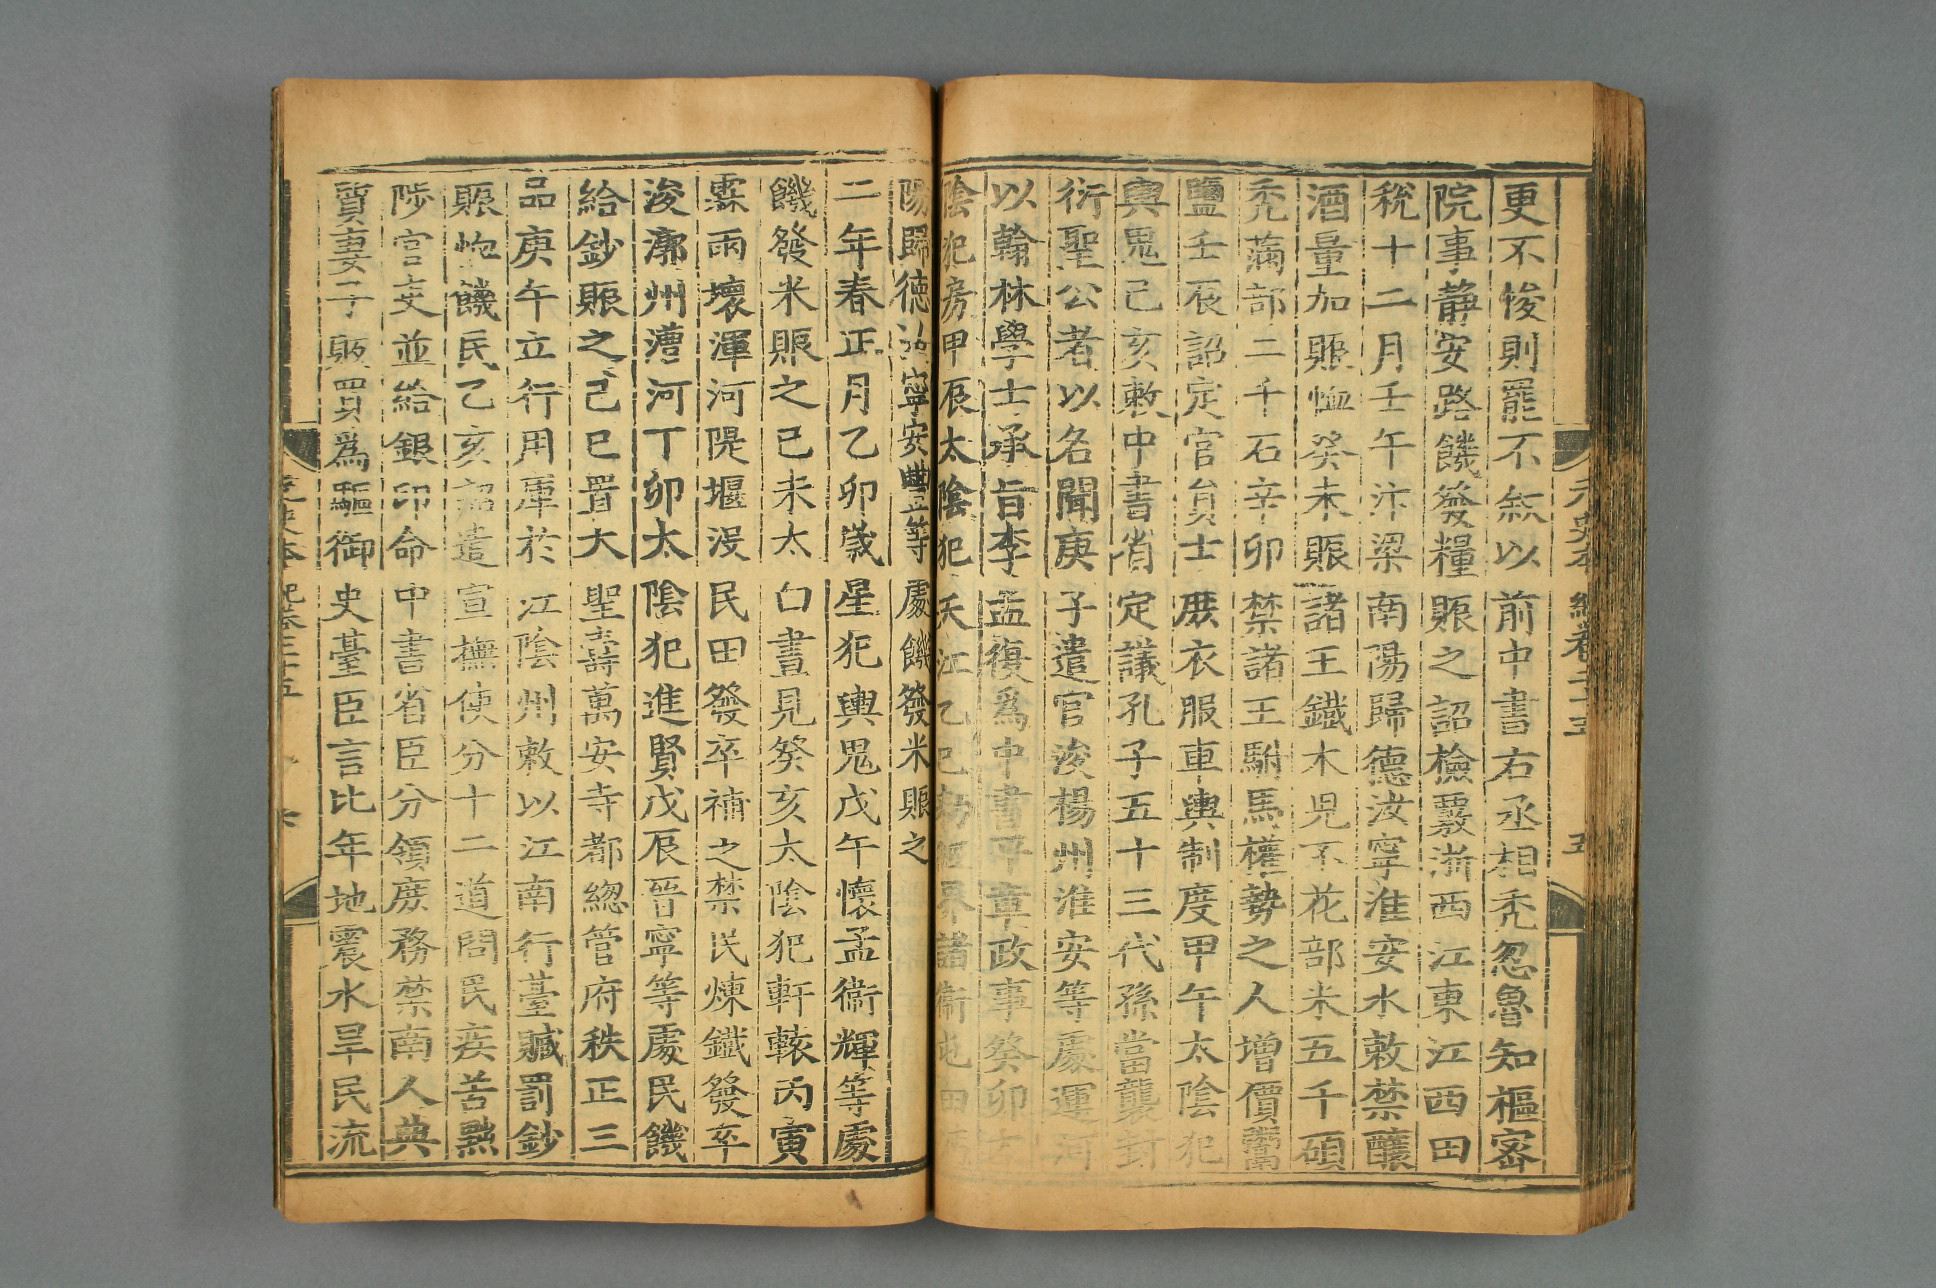 元史本紀卷二十五 五
更不悛則罷不敘以前中書右丞相禿忽魯知樞密
院事靜安路饑發糧賑之詔檢覈浙西江東江西田
稅十二月壬午汴梁南陽歸德汝寧淮安水敕禁釀
酒量加賑恤癸未賑諸王鐵木兒不花部米五千碩
禿滿部二千石辛卯禁諸王駙馬權勢之人增價鬻
鹽壬辰詔定官員士庶衣服車輿制度甲午太陰犯
輿鬼己亥敕中書省定議孔子五十三代孫當襲封
衍聖公者以名聞庚子遣官浚楊州淮安等處運河
以翰林學士承旨李孟復爲中書平章政事癸卯太
陰犯房甲辰太陰犯天江乙巳
陽歸德汝寧安豐等處饑發米賑之
二年春正月乙卯歲星犯輿鬼戊午懷孟衛輝等處
饑發米賑之己未太白晝見癸亥太陰犯軒轅丙寅
霖雨壞渾河隄堰沒民田發卒補之禁民煉鐵發卒
浚漷州漕河丁卯太陰犯進賢戊辰晉寧等處民饑
給鈔賑之己巳置大聖壽萬安寺都總管府秩正三
品庚午立行用庫於江陰州敕以江南行臺贓罰鈔
賑恤饑民乙亥詔遣宣撫使分十二道問民疾苦黜
陟官吏並給銀印命中書省臣分領庶務禁南人典
質妻子販買爲驅御史臺臣言比年地震水旱民流
元史本紀卷二十五 六